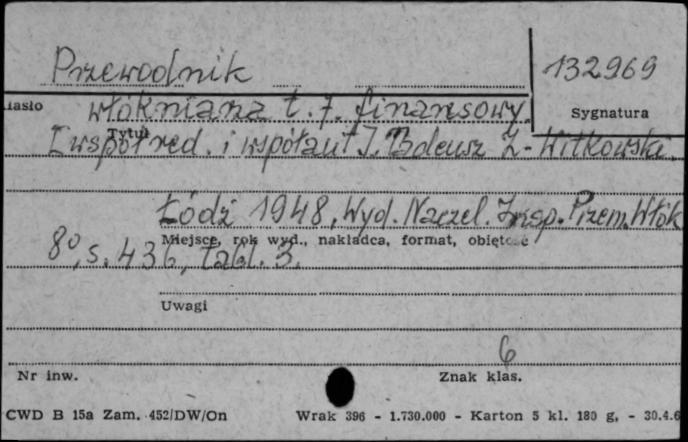 Przewodnik 132969
Hasło włókniarza t. 7. finansowy. Sygnatura
Tytuł
[współred. i współaut J. Tadeusz Z. Witkowski.
Łódź 1948, Wyd. Naczel. Insp. Przem. Włók
Miejsce, rok wyd., nakładca, format, objętość
8°, s. 436, tabl. 3.
Uwagi
6
Nr inw. Znak klas.
CWD B 15a Zam. 452/DW/On Wrak 396 - 1.730.000 - Karton 5 kl. 180 g, - 30.4.6